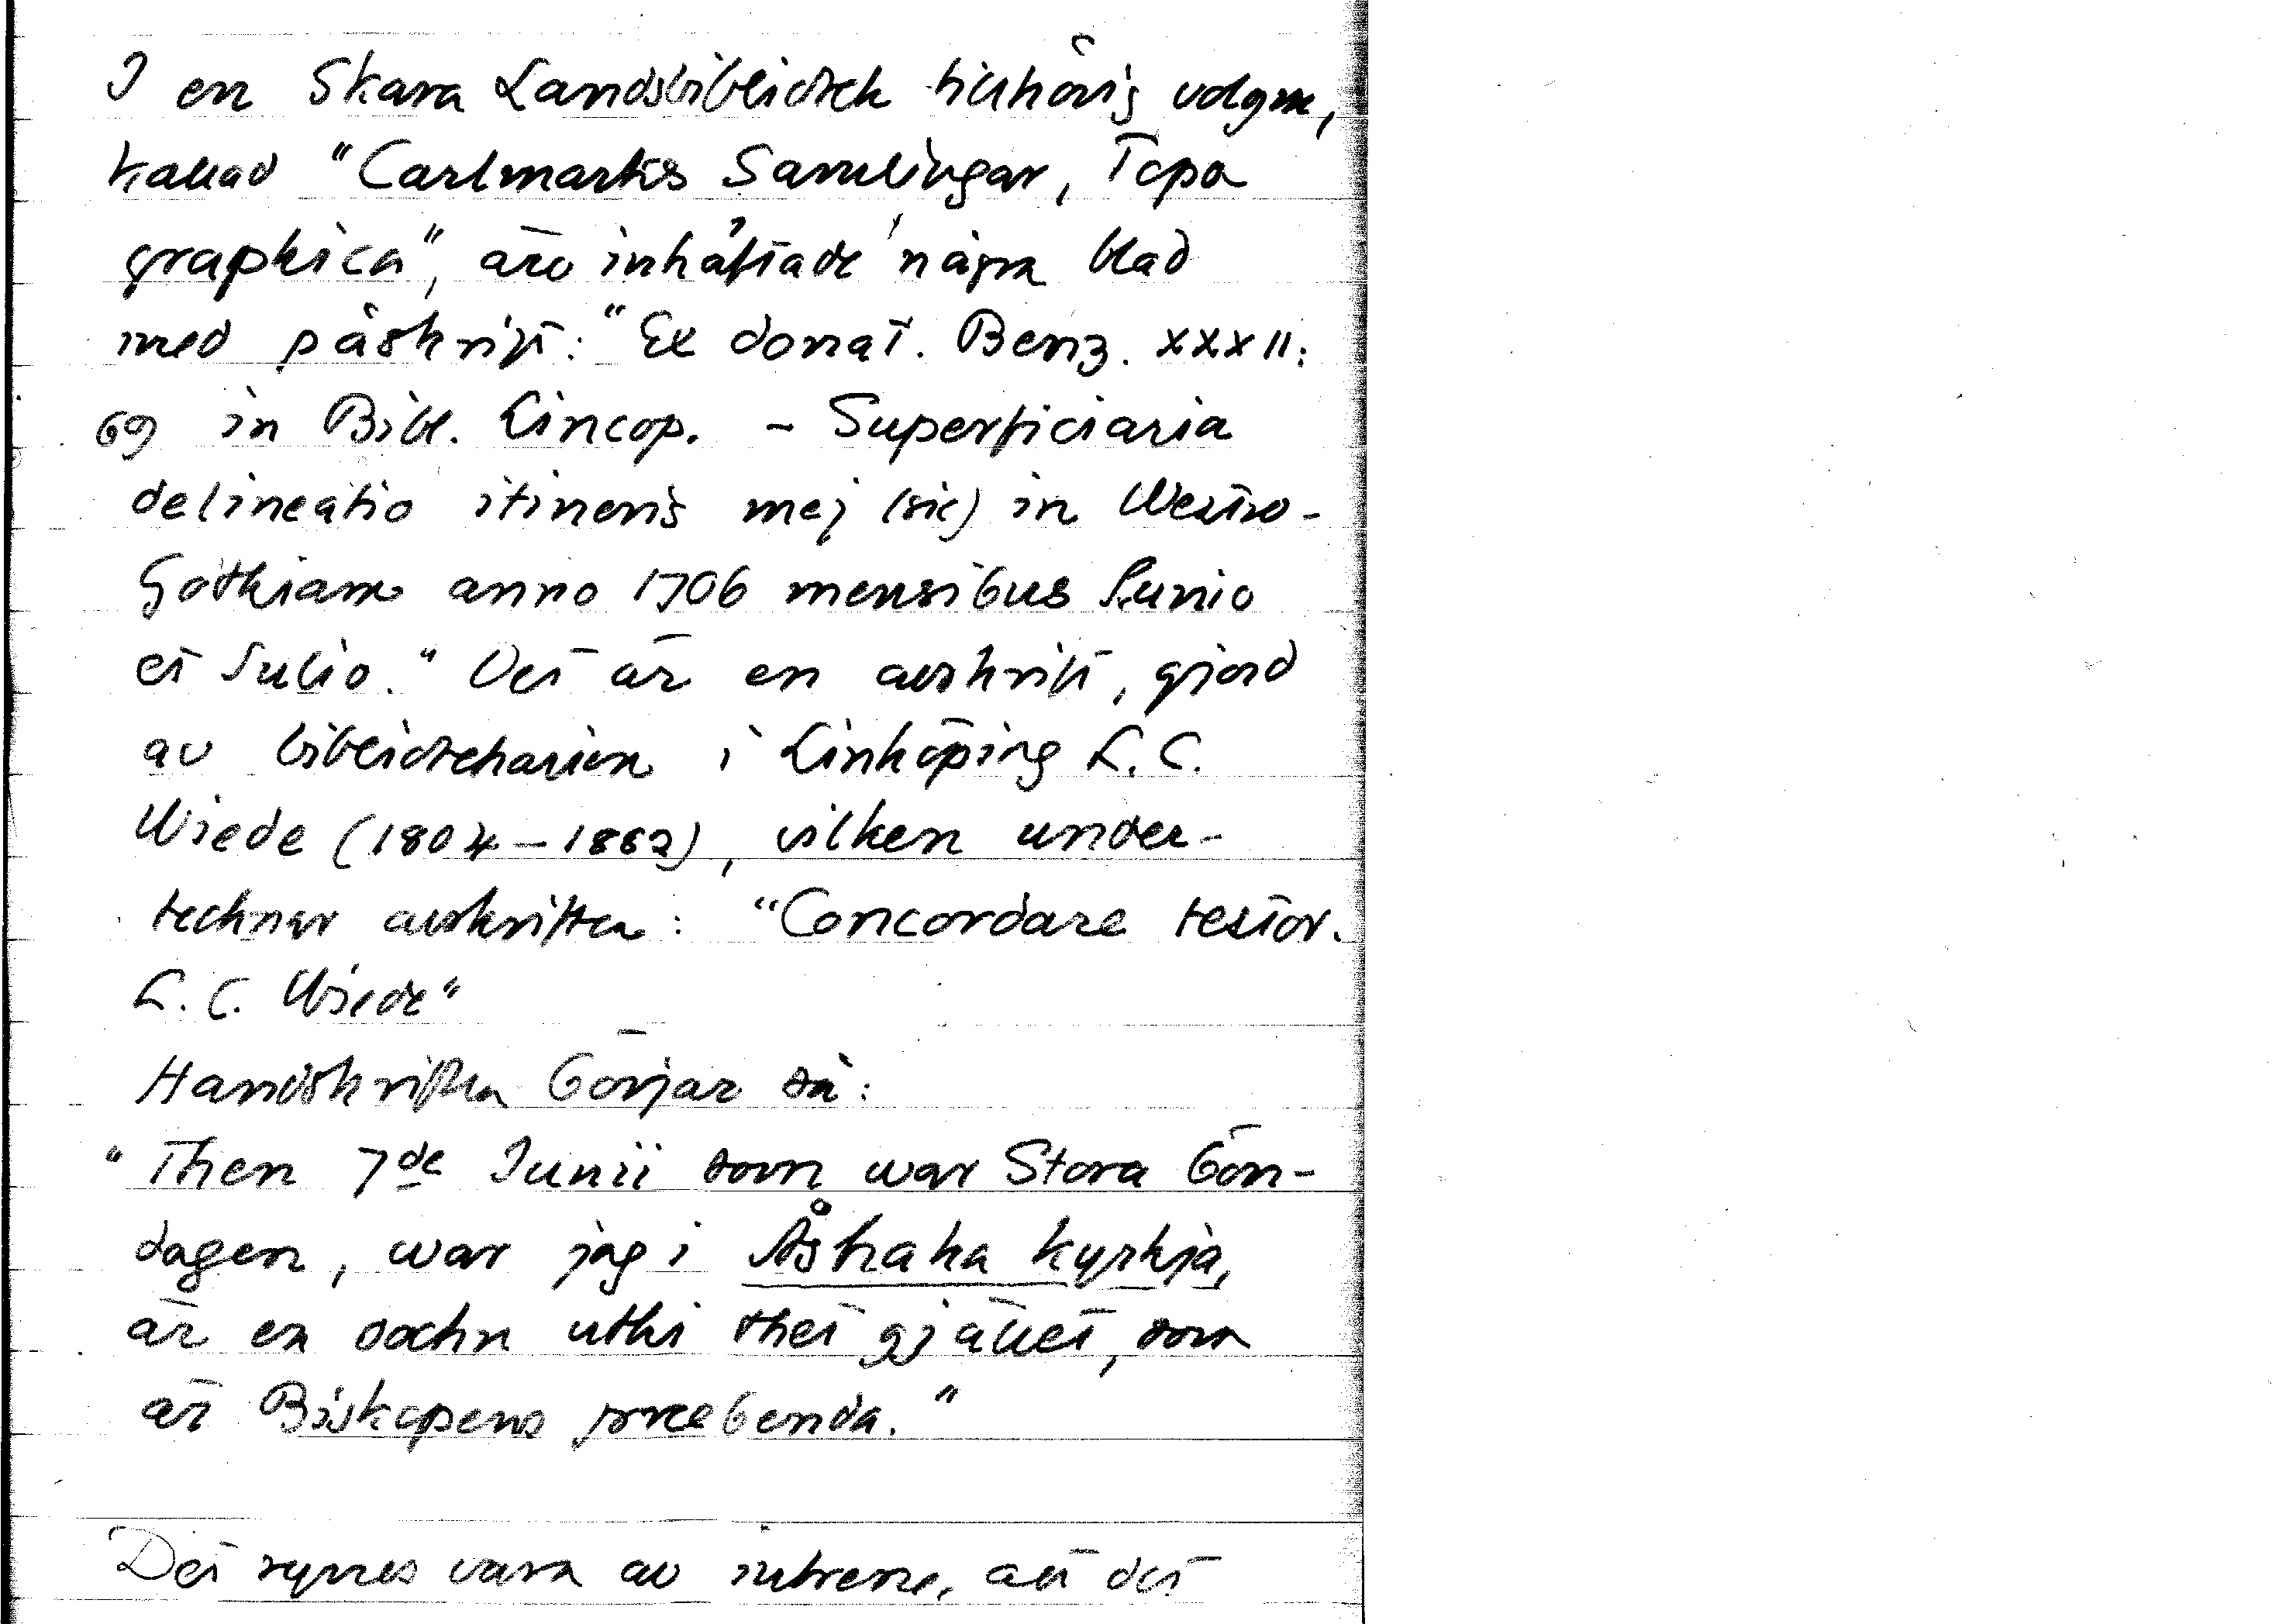 I en Skara Landsbibliotek tillhörig volym,
kallad "Carlmarks Samlingar, Topo
graphica", äro inhäftade några blad
med påskrift: "Ex donat. Benz. XXXII:
69 in Bibl. Lincop. - Superficiaria
delineatio itineris mej (sic) in Westro-
Gothiam anno 1706 mensibus Junio
et Julio." Det är en avskrift, gjord
av bibliotekarien i Linköping L.C.
Wiede (1804-1882), vilken under-
tecknar avskriften: "Concordare testor.
L.C. Wiede"
Handskriften börjar så:
"Then 7de Junii som war Stora Bön-
dagen, war jag i Åshaka kyrkja,
är en sochn uthi thet gjället, som
är Biskopens præbenda."
Det synes vara av intresse, att det